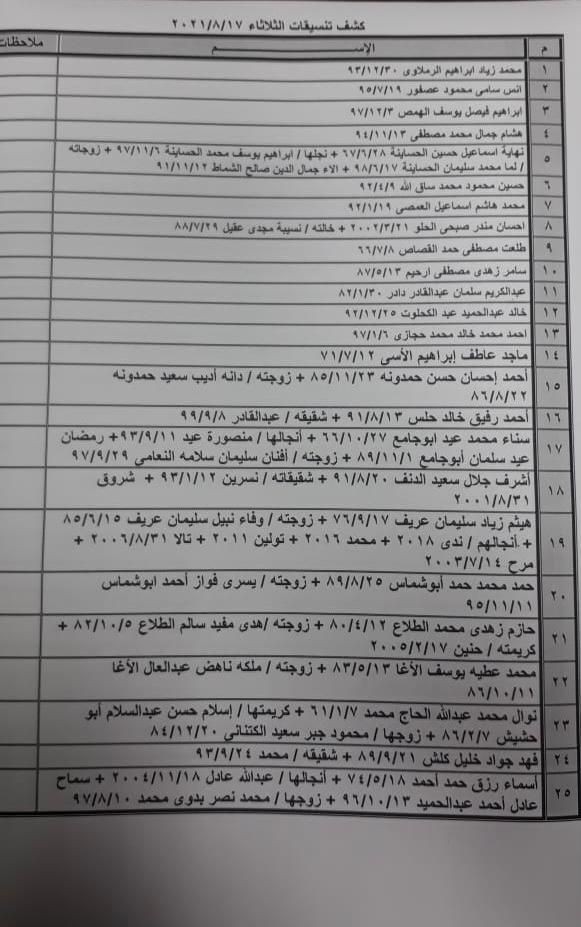 كشف تنسيقات الثلاثاء ٢٠٢١/٨/١٧
م الإســـــم ملاحظات
١ محمد زياد ابراهيم الرملاوى ٩٣/١٢/٣٠
٢ انس سامى محمود عصفور ٩٥/٧/١٩
٣ ابراهيم فيصل يوسف الهمص ٩٧/١٢/٣
٤ هشام جمال محمد مصطفى ٩٤/١١/١٣
٥ نهاية اسماعيل حسين الحساينة ٦٧/٦/٢٨ + نجلها / ابراهيم يوسف محمد الحساينة ٩٧/١١/٦ + زوجاته
/ لما محمد سليمان الحساينة ٩٨/٦/١٧ + الاء جمال الدين صالح الشماط ٩١/١١/١٢
٦ حسين محمود محمد ساق الله ٩٢/٤/٩
٧ محمد هاشم اسماعيل العمصى ٩٢/١/١٩
٨ احسان منذر صبحى الحلو ٢٠٠٢/٣/٢١ + خالته / نسيبة مجدى عقيل ٨٨/٧/٢٩
٩ طلعت مصطفى حمد القصاص ٦٦/٧/٨
١٠ سامر زهدى مصطفى ارحيم ٨٧/٥/١٣
١١ عبدالكريم سلمان عبدالقادر دادر ٨٢/١/٣٠
١٢ خالد عبدالحميد عبد الكحلوت ٩٢/١٢/٢٥
١٣ احمد محمد خالد محمد حجازى ٩٧/١/٦
١٤ ماجد عاطف إبراهيم الأسى ٧١/٧/١٢
١٥ أحمد إحسان حسن حمدونه ٨٥/١١/٢٣ + زوجته / دانه أديب سعيد حمدونه
٨٦/٨/٢٢
١٦ أحمد رفيق خالد حلس ٩١/٨/١٣ + شقيقه / عبدالقادر ٩٩/٩/٨
١٧ سناء محمد عيد ابوجامع ٦٦/١٠/٢٧ + أنجالها / منصورة عيد ٩٣/٩/١١+ رمضان
عيد سلمان أبوجامع ٨٩/١١/١ + زوجته / أفنان سليمان سلامه النعامى ٩٧/٩/٢٩
١٨ أشرف جلال سعيد الدنف ٩١/٨/٢٠ + شقيقاته / نسرين ٩٣/١/١٢ + شروق
٢٠٠١/٨/٣١
١٩ هيثم زياد سليمان عريف ٧٦/٩/١٧ + زوجته / وفاء نبيل سليمان عريف ٨٥/٦/١٥
+ أنجالهم / ندى ٢٠١٨ + محمد ٢٠١٦ + تولين ٢٠١١ + تالا ٢٠٠٦/٨/٣١ +
مرح ٢٠٠٣/٧/١٤
٢٠ حمد محمد حمد أبوشماس ٨٩/٨/٢٥ + زوجته / يسرى فواز أحمد ابوشماس
٩٥/١١/١١
٢١ حازم زهدى محمد الطلاع ٨٠/٤/١٢ + زوجته /هدى مفيد سالم الطلاع ٨٢/١٠/٥ +
كريمته / حنين ٢٠٠٥/٢/١٧
٢٢ محمد عطيه يوسف الأغا ٨٣/٥/١٣ + زوجته / ملكه ناهض عبدالعال الأغا
٨٦/١٠/١١
٢٣ نوال محمد عبدالله الحاج محمد ٦١/١/٧ + كريمتها / إسلام حسن عبدالسلام أبو
حشيش ٨٦/٢/٧ + زوجها / محمود جبر سعيد الكتنانى ٨٤/١٢/٢٠
٢٤ فهد جواد خليل كلش ٨٩/٩/٢١ + شقيقه / محمد ٩٣/٩/٢٤
٢٥ أسماء رزق حمد أحمد ٧٤/٥/١٨ + أنجالها / عبدالله عادل ٢٠٠٤/١١/١٨ + سماح
عادل أحمد عبدالحميد ٩٦/١٠/١٣ + زوجها / محمد نصر بدوى محمد ٩٧/٨/١٠